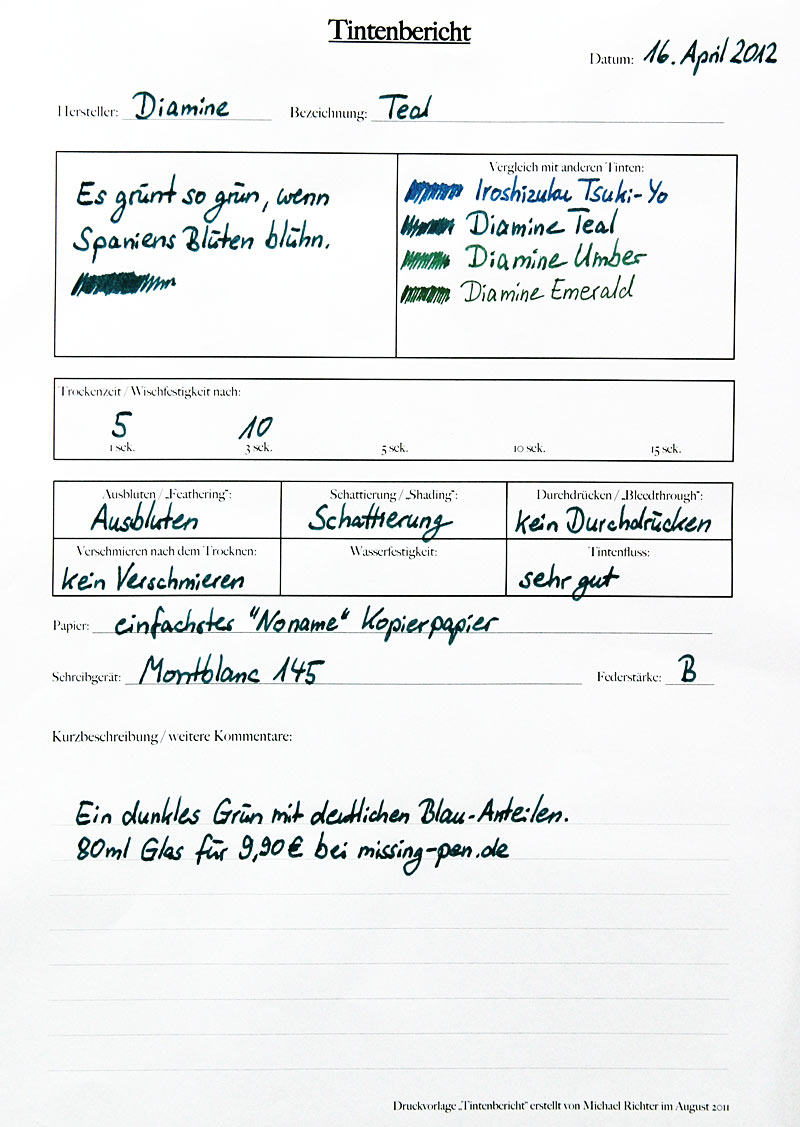 Tintenbericht
Datum: 16. April 2012
Hersteller: Diamine Bezeichnung: Teal
Es grünt so grün, wenn
Spaniens Blüten blühn.
Vergleich mit anderen Tinten:
Iroshizuku Tsuki-Yo
Diamine Teal
Diamine Umber
Diamine Emerald
Trockenzeit / Wischfestigkeit nach:
5 10
1 sek. 3 sek. 5 sek. 10 sek. 15 sek.
Ausbluten / „Feathering“: Schattierung / „Shading“: Durchdrücken / „Bleedthrough“:
Ausbluten Schattierung kein Durchdrücken
Verschmieren nach dem Trocknen: Wasserfestigkeit: Tintenfluss:
kein Verschmieren sehr gut
Papier: einfachstes "Noname" Kopierpapier
Schreibgerät: Montblanc 145 Federstärke: B
Kurzbeschreibung / weitere Kommentare:
Ein dunkles Grün mit deutlichen Blau-Anteilen.
80ml Glas für 9,90€ bei missing-pen.de
Druckvorlage „Tintenbericht“ erstellt von Michael Richter im August 2011